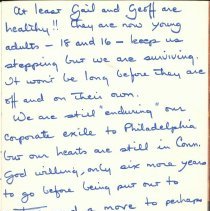 At least Gail and Geoff are
healthy!! They are now young
adults - 18 and 16 - keep us
stepping but we are surviving.
It won't be long before they are
off and on their own.
We are still "enduring" our
corporate exile to Philadelphia
but our hearts are still in Conn.
God willing, only six more years
to go before being put out to
and a move to perhaps